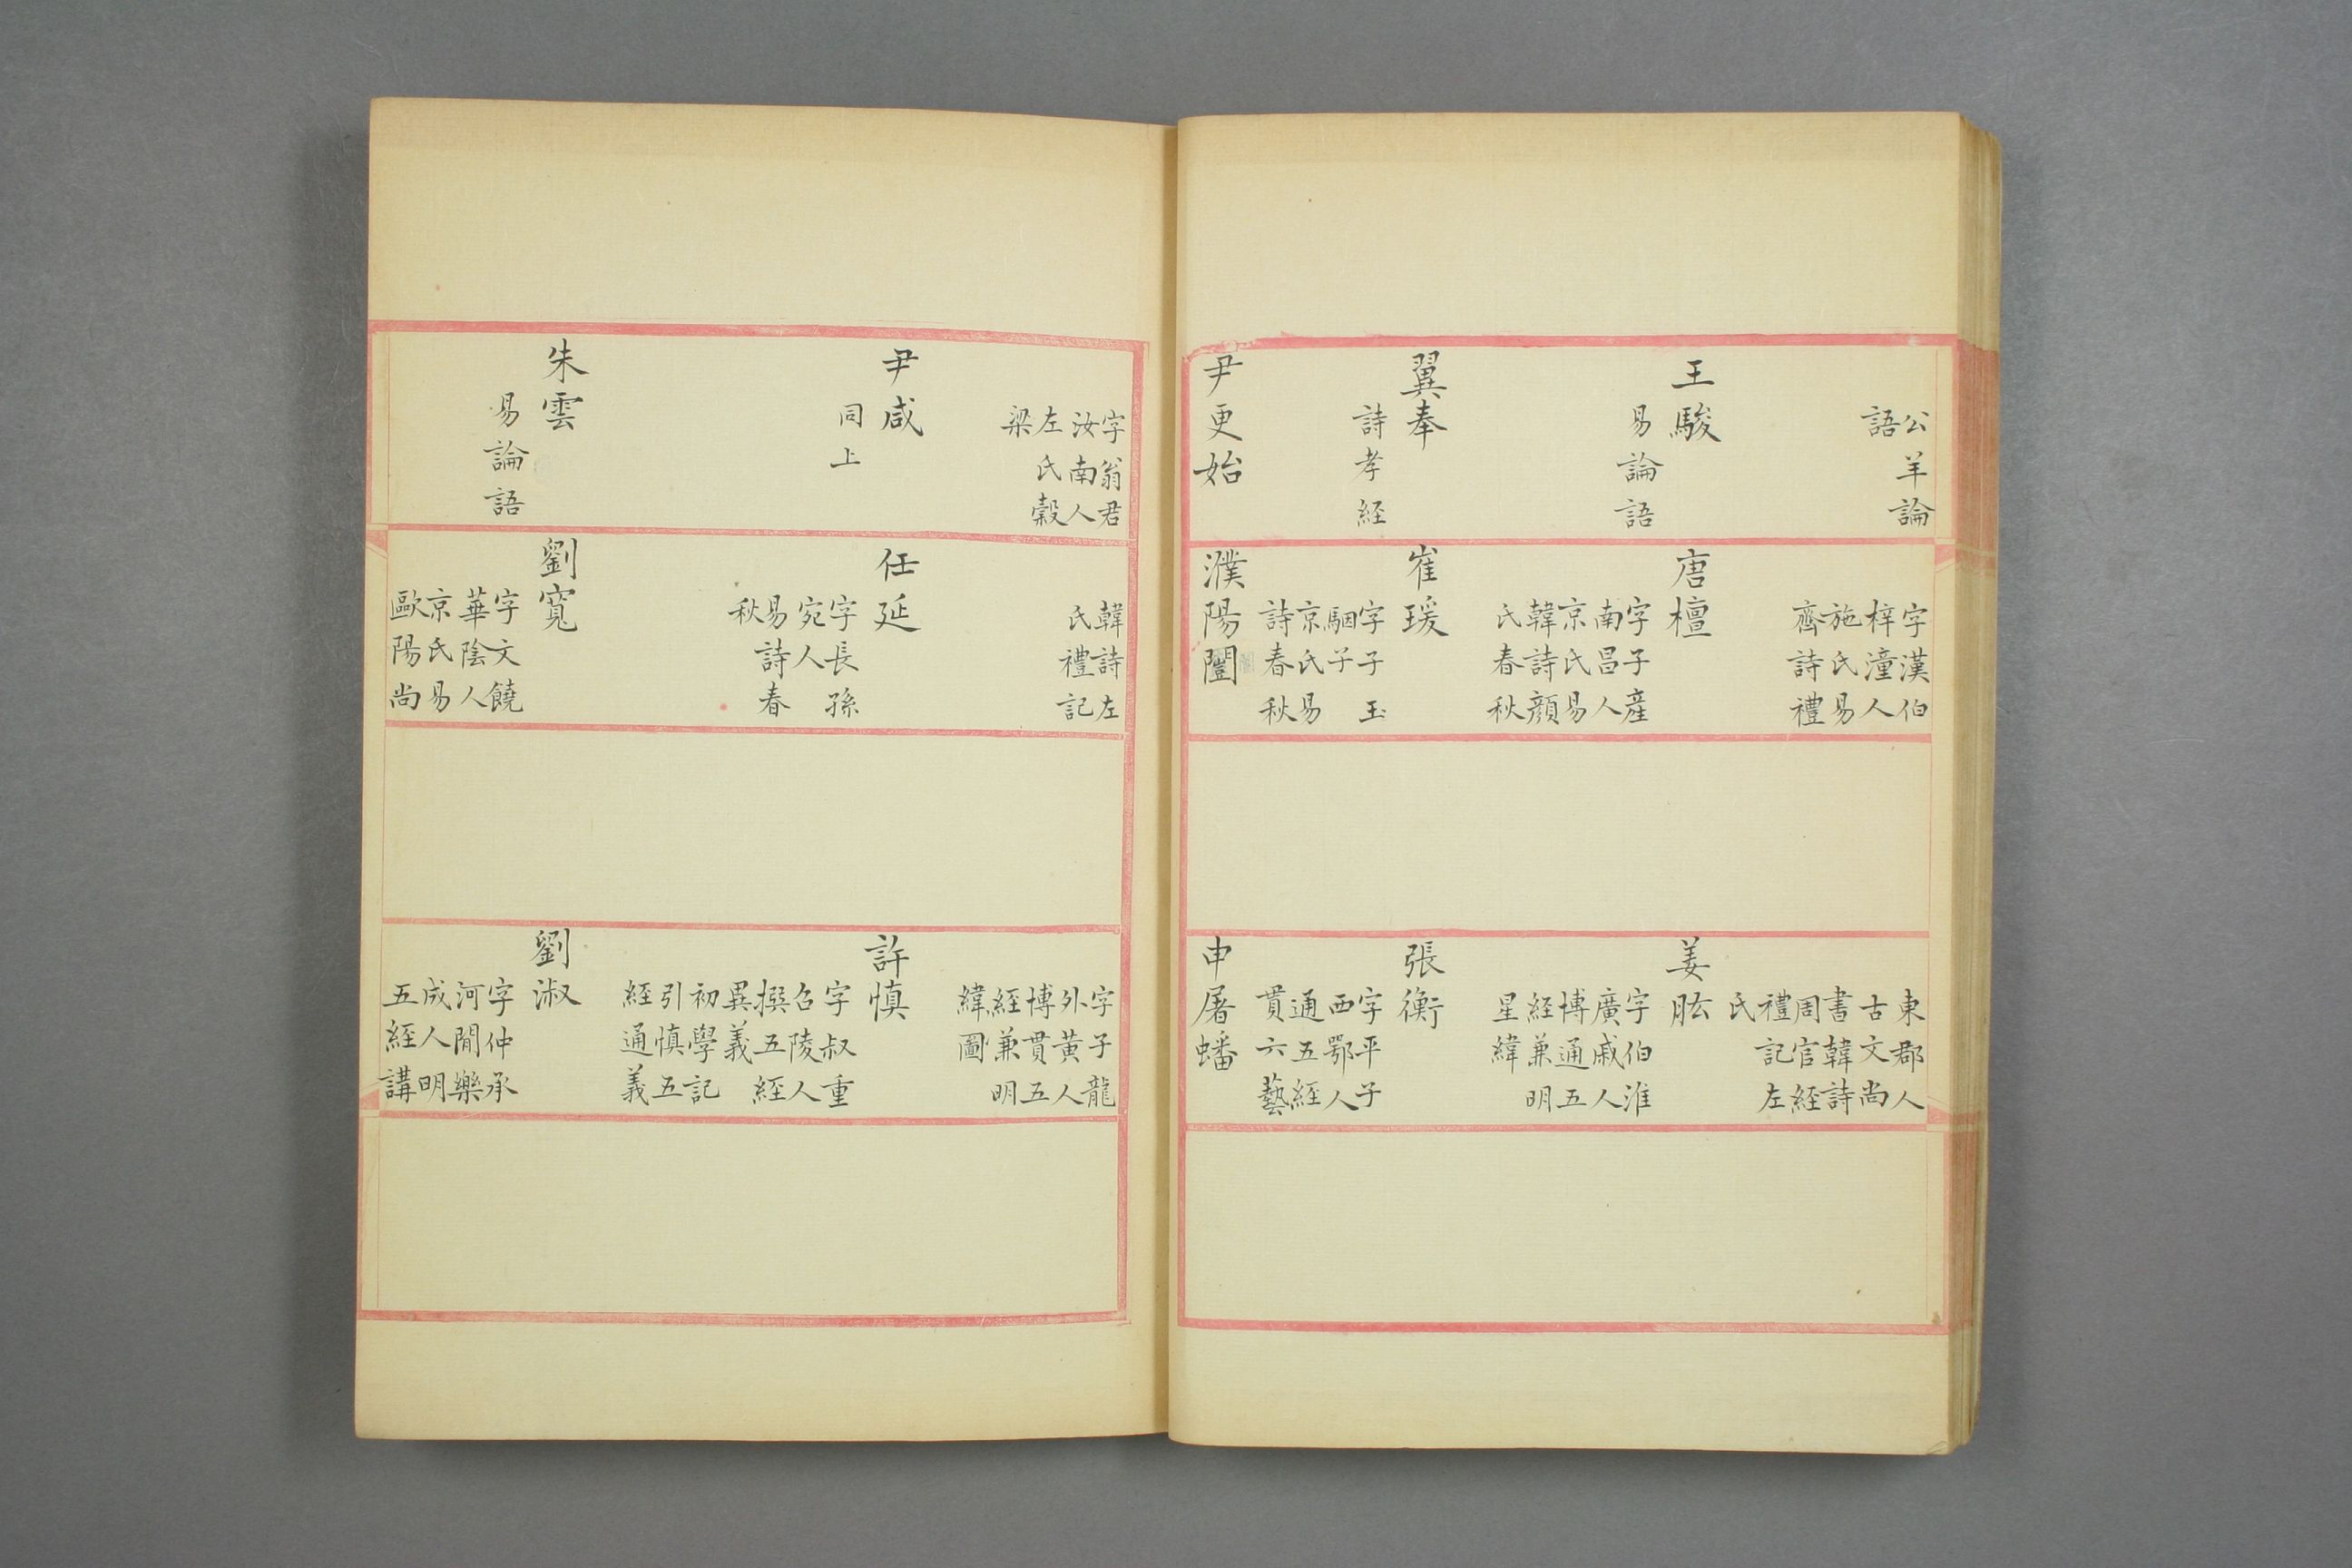 公羊論
語
王駿
易論語
翼奉
詩孝經
尹更始
字漢伯
梓潼人
施氏易
齊詩禮
唐檀
字子產
南昌人
京氏易
韓詩顏
氏春秋
崔瑗
字子玉
駰子
京氏易
詩春秋
濮陽闓
東郡人
古文尚
書韓詩
周官經
禮記左
氏
姜肱
字伯淮
廣戚人
博通五
經兼明
星緯
張衡
字平子
西鄂人
通五經
貫六藝
申屠蟠
字翁君
汝南人
左氏穀
梁
尹咸
同上
朱雲
易論語
韓詩左
氏禮記
任延
字長孫
宛人
易詩春
秋
劉寬
字文饒
華陰人
京氏易
歐陽尚
字子龍
外黃人
博貫五
經兼明
緯圖
許慎
字叔重
召陵人
撰五經
異義
初學記
引慎五
經通義
劉淑
字仲承
河間樂
成人明
五經講